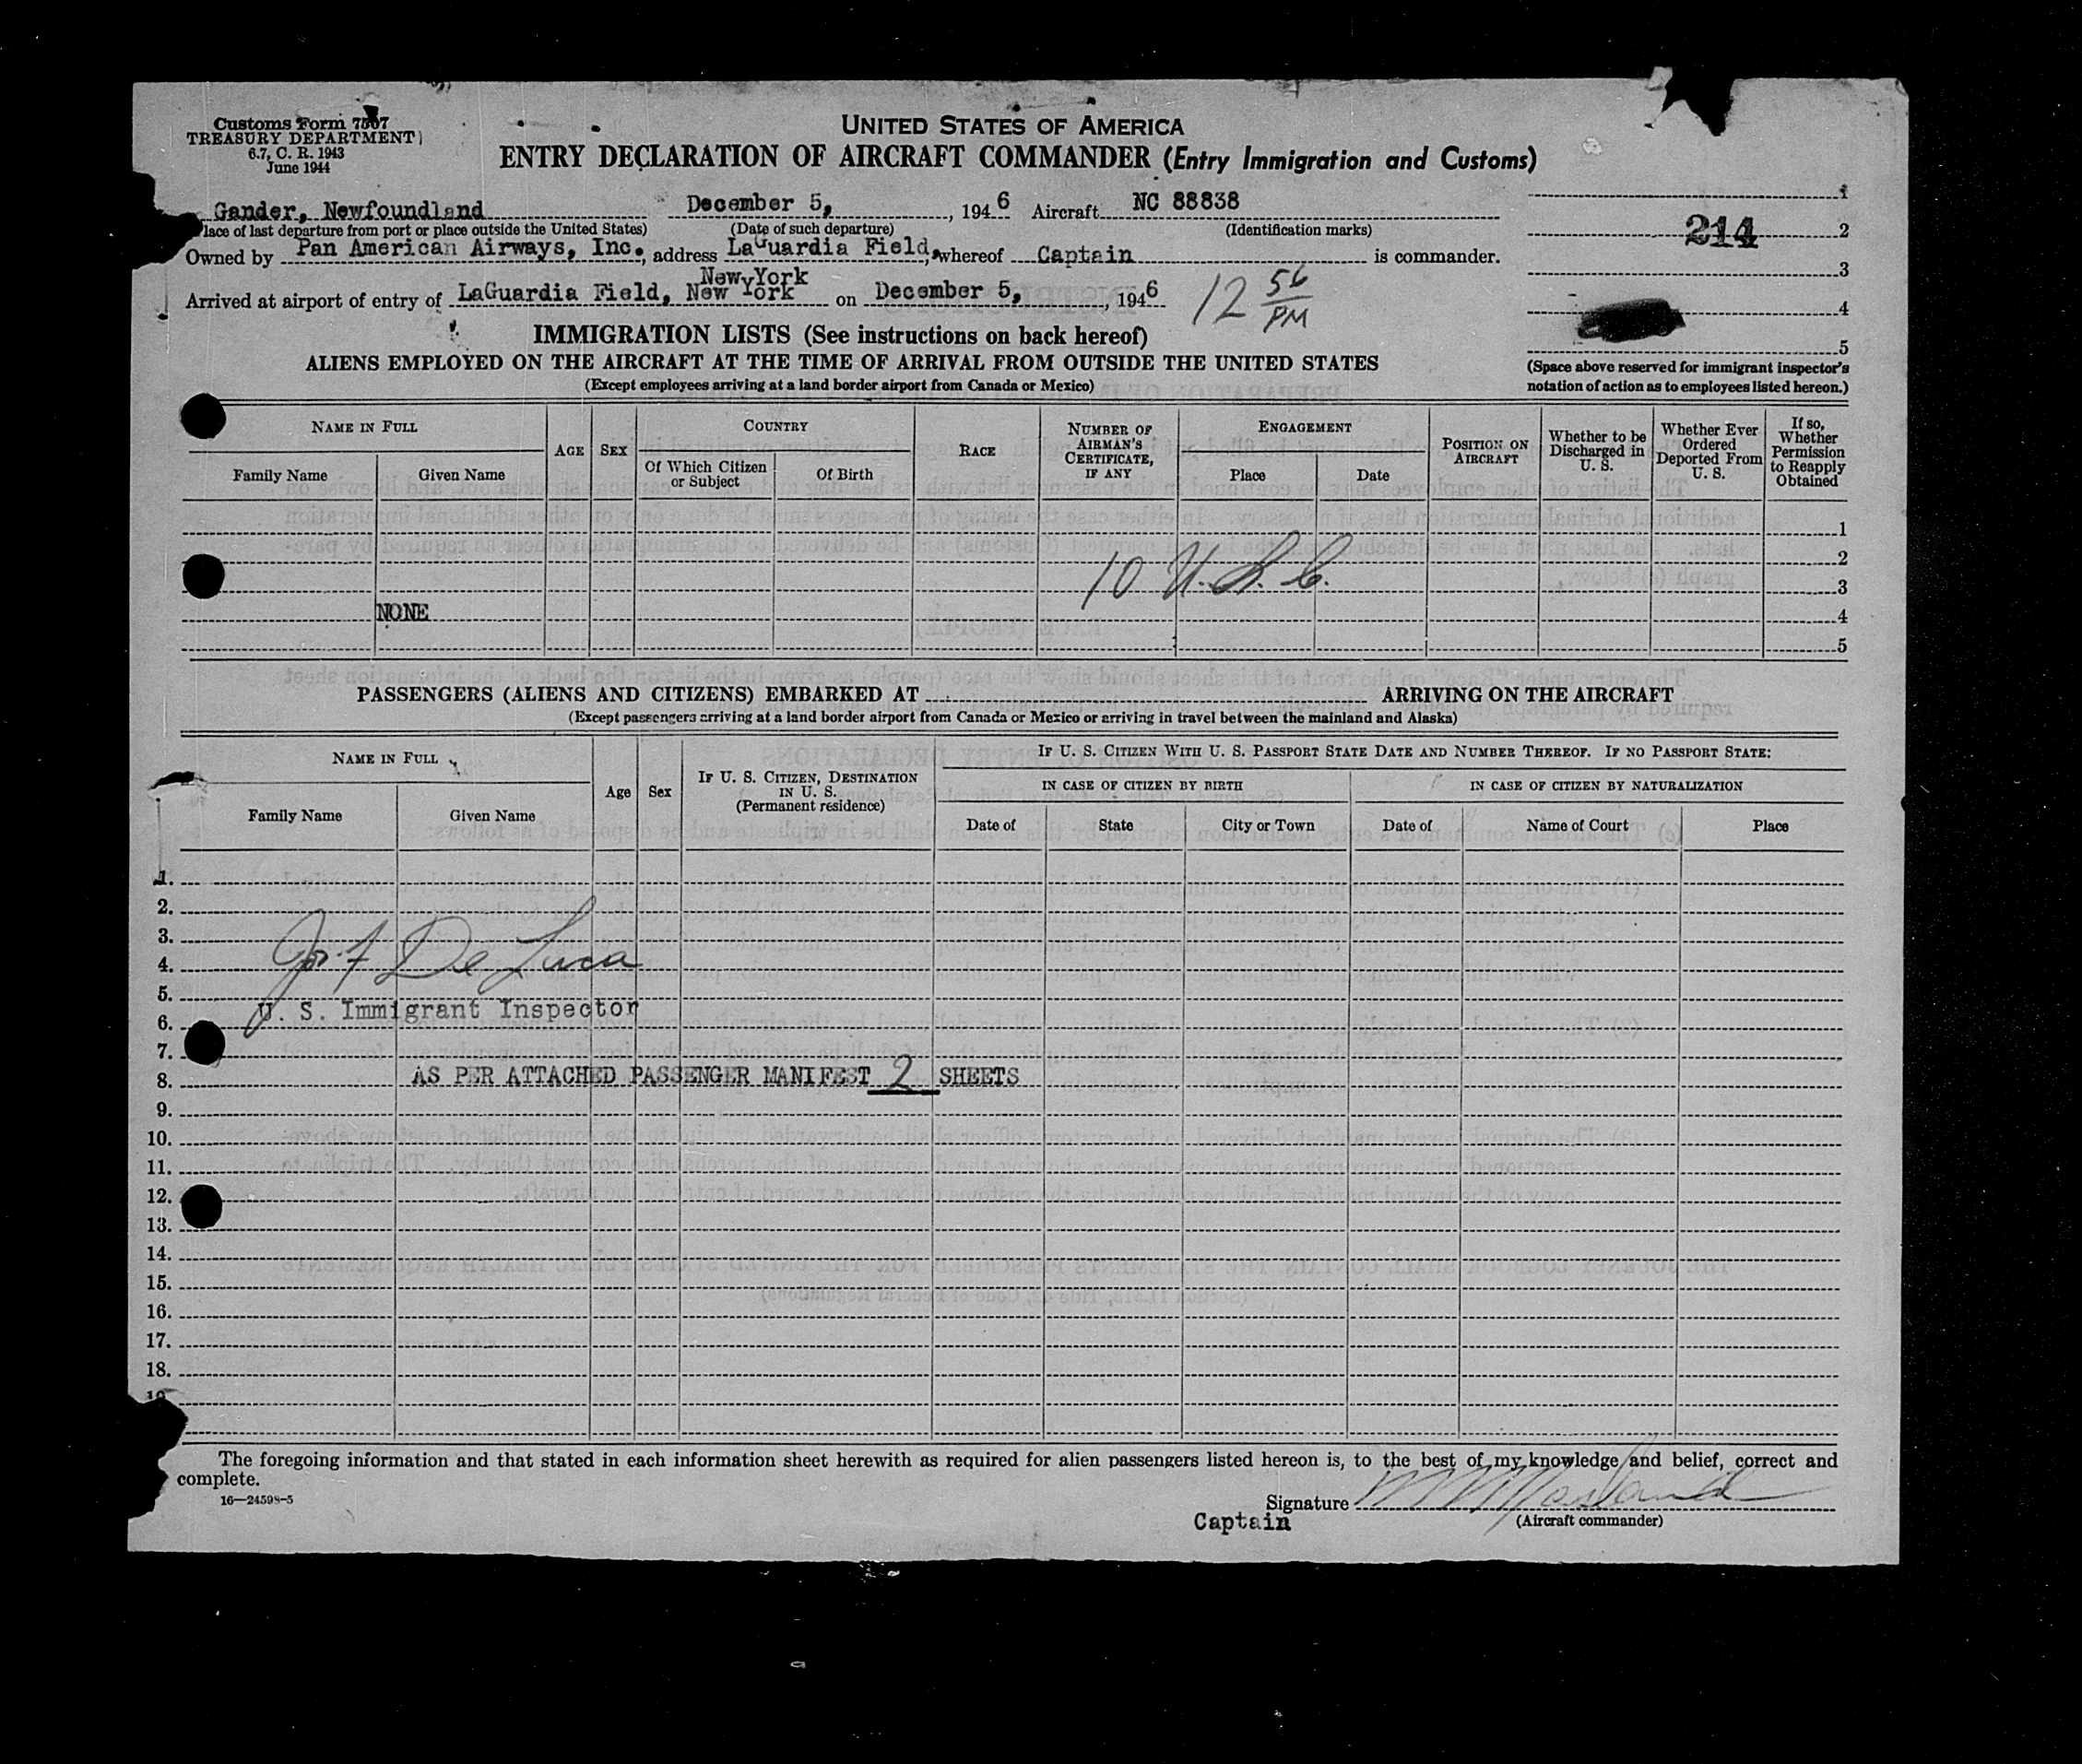 Customs Form 7507
TREASURY DEPARTMENT
6.7, C. R. 1943
June 1944
UNITED STATES OF AMERICA
ENTRY DECLARATION OF AIRCRAFT COMMANDER (Entry Immigration and Customs)
Gander, Newfoundland December 5, , 1946 Aircraft NC 88838
lace of last departure from port or place outside the United States) (Date of such departure) (Identification marks)
Owned by Pan American Airways, Inc., address LaGuardia Field, whereof Captain is commander.
New York
Arrived at airport of entry of LaGuardia Field, New York on December 5, , 1946 12 56 PM
1
214 2
3
4
5
(Space above reserved for immigrant inspector's
notation of action as to employees listed hereon.)
IMMIGRATION LISTS (See instructions on back hereof)
ALIENS EMPLOYED ON THE AIRCRAFT AT THE TIME OF ARRIVAL FROM OUTSIDE THE UNITED STATES
(Except employees arriving at a land border airport from Canada or Mexico)
NAME IN FULL
Family Name Given Name
AGE SEX
COUNTRY
Of Which Citizen or Subject Of Birth
RACE
NUMBER OF AIRMAN'S CERTIFICATE, IF ANY
ENGAGEMENT
Place Date
POSITION ON AIRCRAFT
Whether to be Discharged in U. S.
Whether Ever Ordered Deported From U. S.
If so, Whether Permission to Reapply Obtained
1
2
10 U. S. C. 3
NONE 4
5
PASSENGERS (ALIENS AND CITIZENS) EMBARKED AT ARRIVING ON THE AIRCRAFT
(Except passengers arriving at a land border airport from Canada or Mexico or arriving in travel between the mainland and Alaska)
NAME IN FULL
Family Name Given Name
Age Sex
IF U. S. CITIZEN, DESTINATION IN U. S.
(Permanent residence)
IF U. S. CITIZEN WITH U. S. PASSPORT STATE DATE AND NUMBER THEREOF. IF NO PASSPORT STATE:
IN CASE OF CITIZEN BY BIRTH IN CASE OF CITIZEN BY NATURALIZATION
Date of State City or Town Date of Name of Court Place
1.
2.
3.
4. De Luca
5.
U. S. Immigrant Inspector
6.
7.
8. AS PER ATTACHED PASSENGER MANIFEST 2 SHEETS
9.
10.
11.
12.
13.
14.
15.
16.
17.
18.
19
The foregoing information and that stated in each information sheet herewith as required for alien passengers listed hereon is, to the best of my knowledge and belief, correct and
complete.
16—24598-5
Signature
Captain (Aircraft commander)